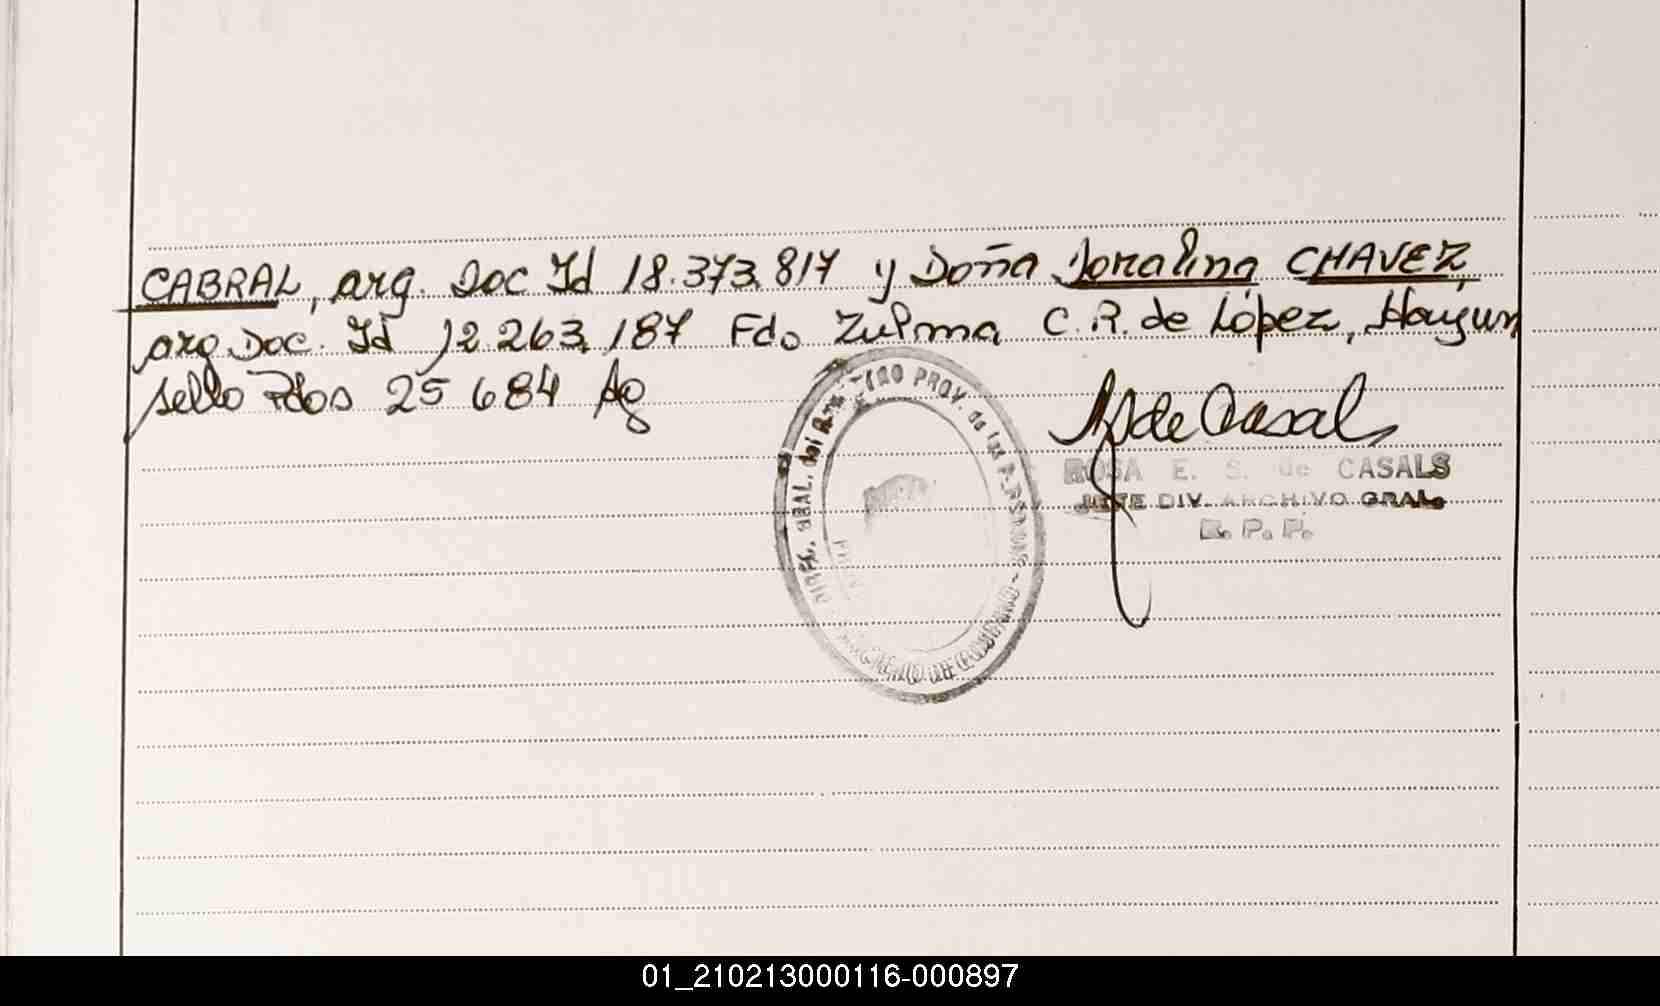 CABRAL, arg. Doc Id 18.373.817 y Doña Doralina CHAVEZ,
arg Doc. Id 12.263.187 Fdo Zulma C.R. de López, Hay un
sello Pdos 25 684 Ag
de Casals
ROSA E. S. de CASALS
JEFE DIV. ARCHIVO GRAL.
R. P. P.
DIREC. GRAL. del PROV. de las PERSONAS - MINISTERIO DE GOBIERNO
01_210213000116-000897